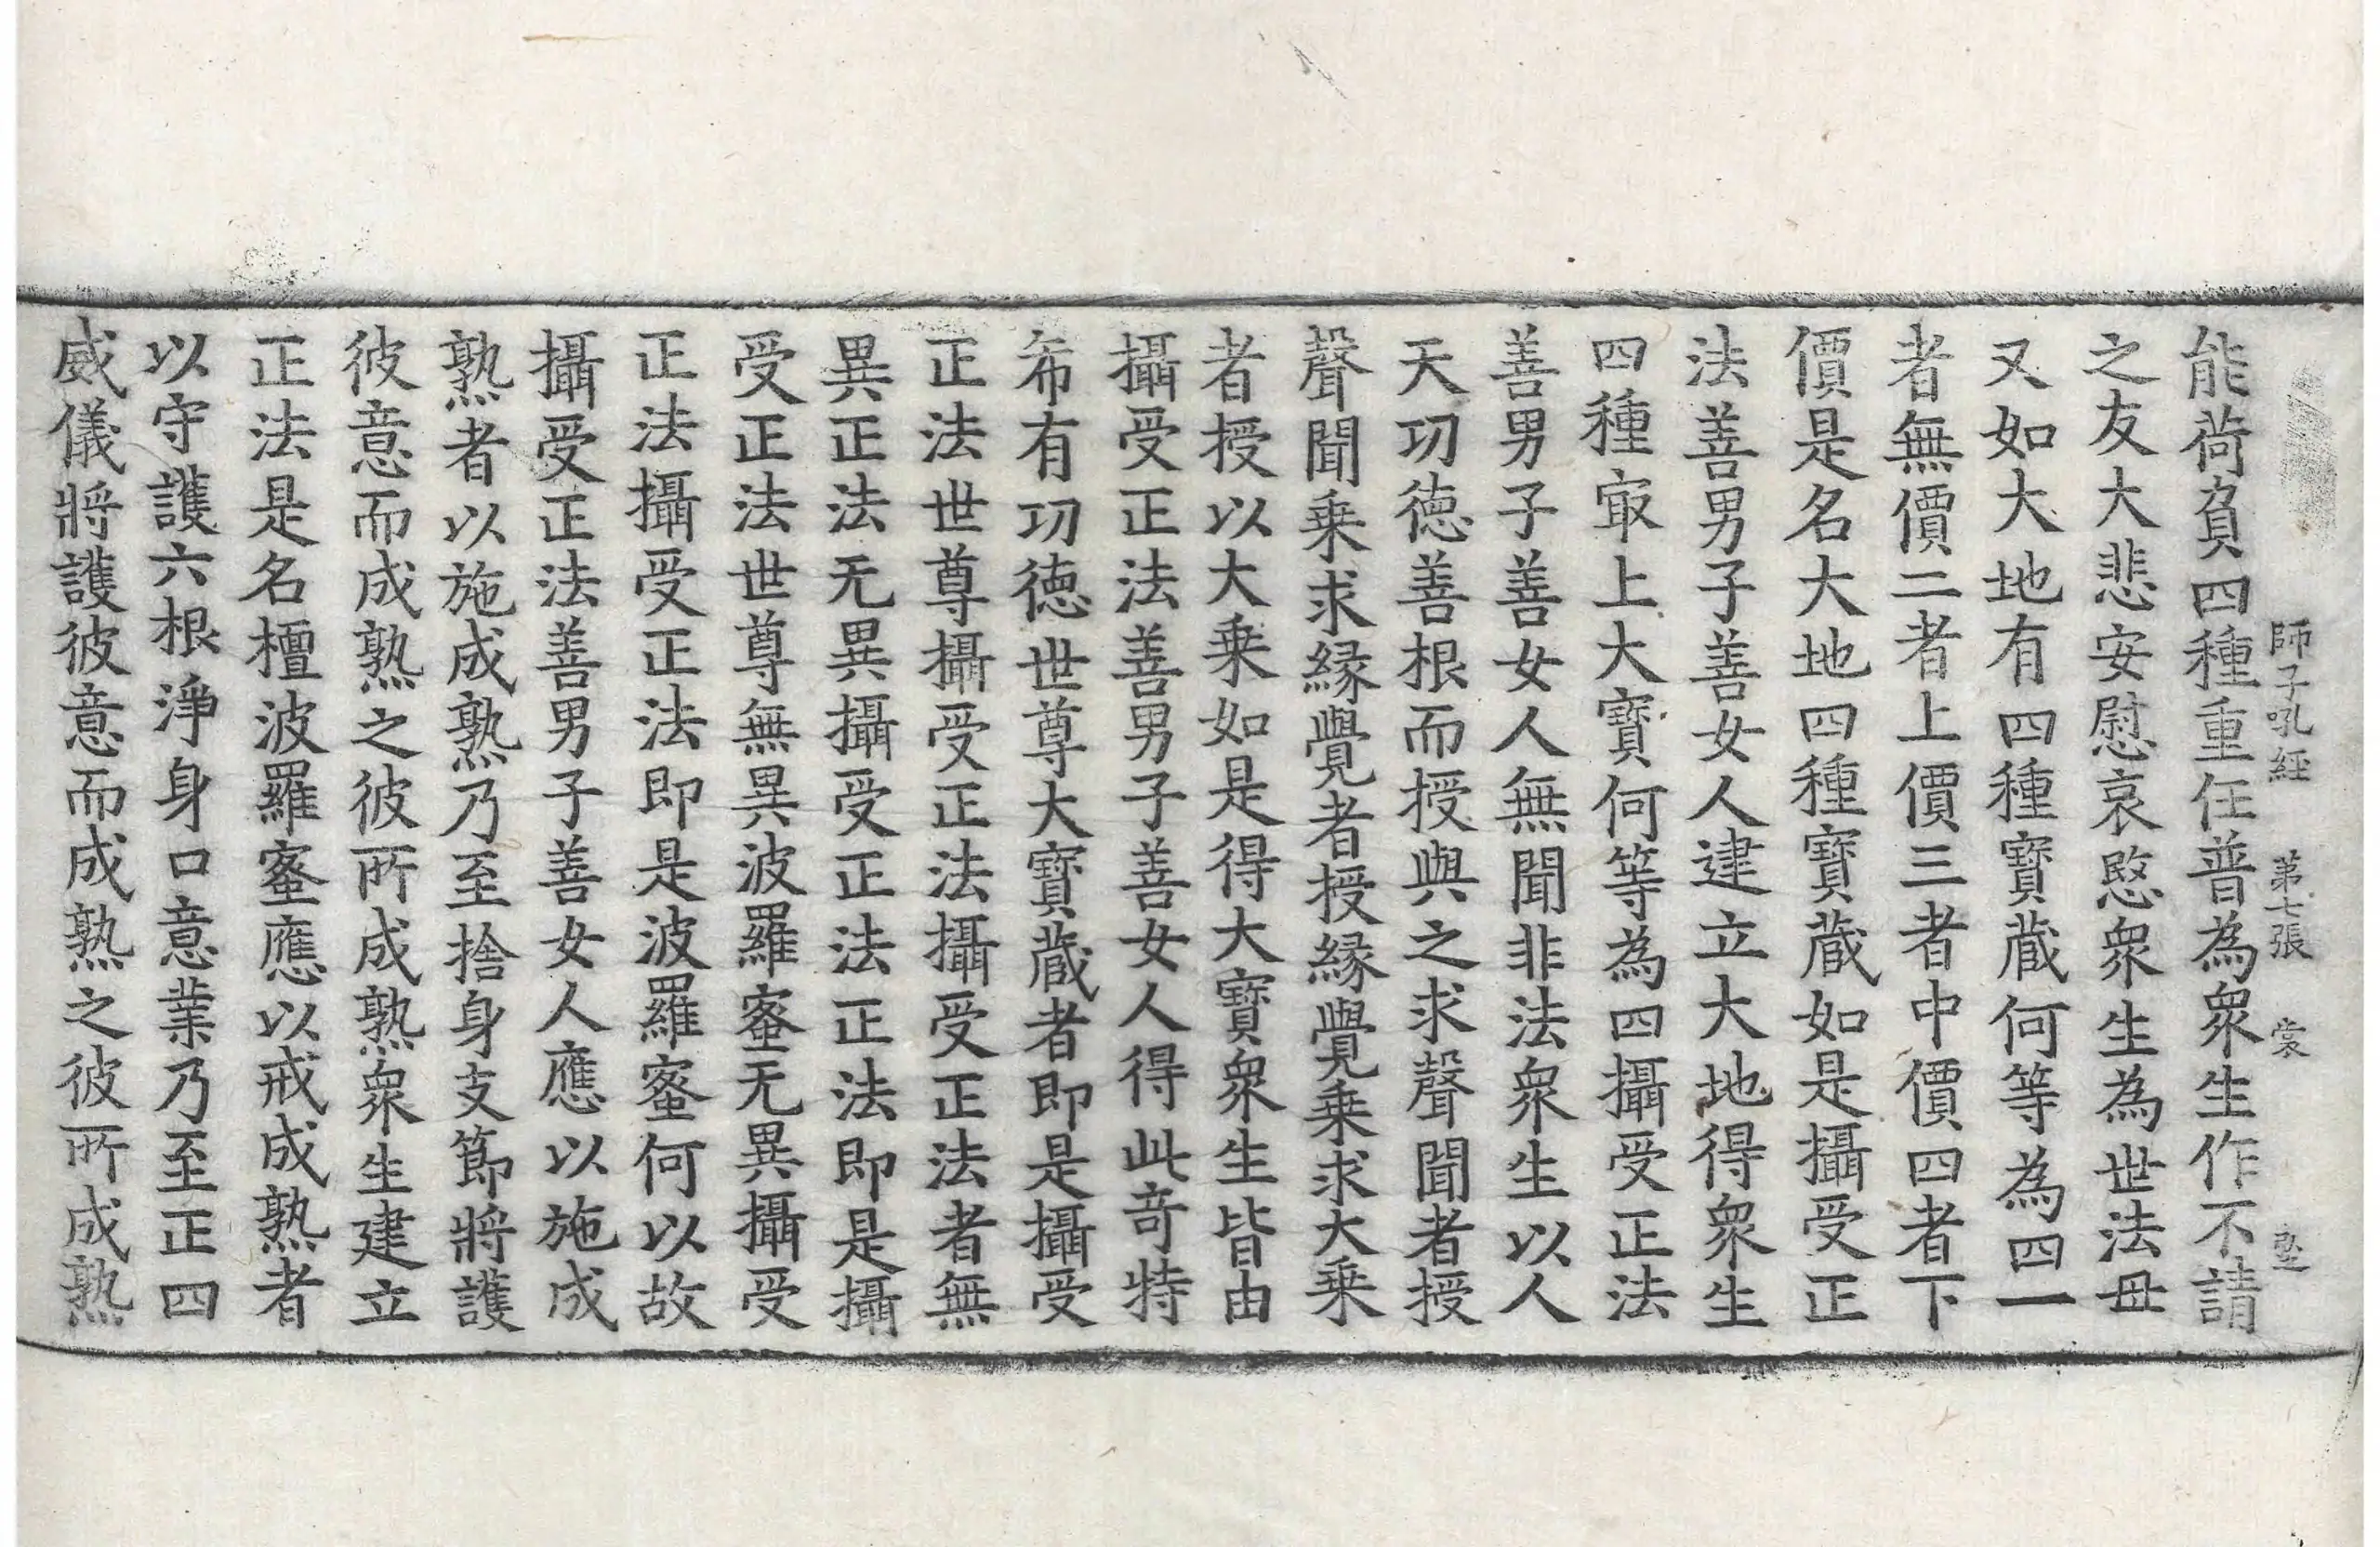 師子吼經 第七張 裳
能荷負四種重任普為衆生作不請
之友大悲安慰哀愍衆生為世法母
又如大地有四種寶蔵何等為四一
者無價二者上價三者中價四者下
價是名大地四種寶蔵如是攝受正
法善男子善女人建立大地得衆生
四種㝡上大寶何等為四攝受正法
善男子善女人無聞非法衆生以人
天功徳善根而授與之求聲聞者授
聲聞乗求縁覺者授縁覺乗求大乗
者授以大乗如是得大寶衆生皆由
攝受正法善男子善女人得此奇特
希有功徳世尊大寶蔵者即是攝受
正法世尊攝受正法攝受正法者無
異正法无異攝受正法正法即是攝
受正法世尊無異波羅蜜无異攝受
正法攝受正法即是波羅蜜何以故
攝受正法善男子善女人應以施成
熟者以施成熟乃至捨身支節將護
彼意而成熟之彼所成熟衆生建立
正法是名檀波羅蜜應以戒成熟者
以守護六根淨身口意業乃至正四
威儀將護彼意而成熟之彼所成熟